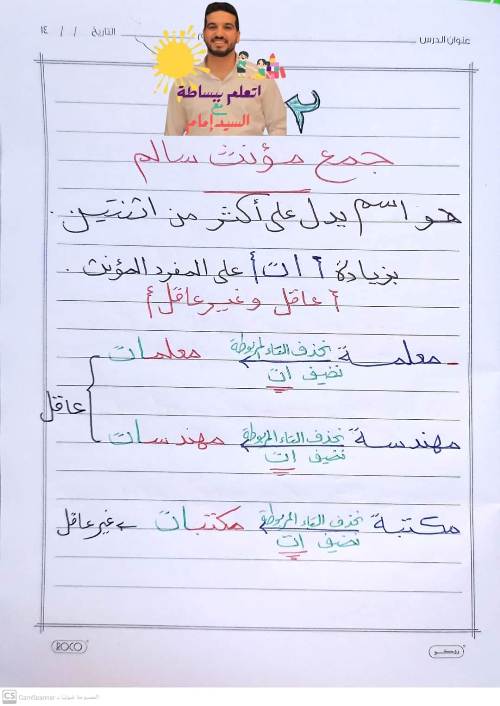 عنوان الدرس التاريخ / / ١٤
اتعلم ببساطة
مع
السيد إمام
٢
جمع مؤنث سالم
هو اسم يدل على أكثر من اثنتين .
بزيادة أ ات أ على المفرد المؤنث .
أ عاقل وغير عاقل أ
معلمة نحذف التاء المربوطة معلمات
نضيف ات
عاقل
مهندسة نحذف التاء المربوطة مهندسات
نضيف ات
مكتبة نحذف التاء المربوطة مكتبات غير عاقل
نضيف ات
ROCO روكو
CS CamScanner الممسوحة ضوئيا بـ